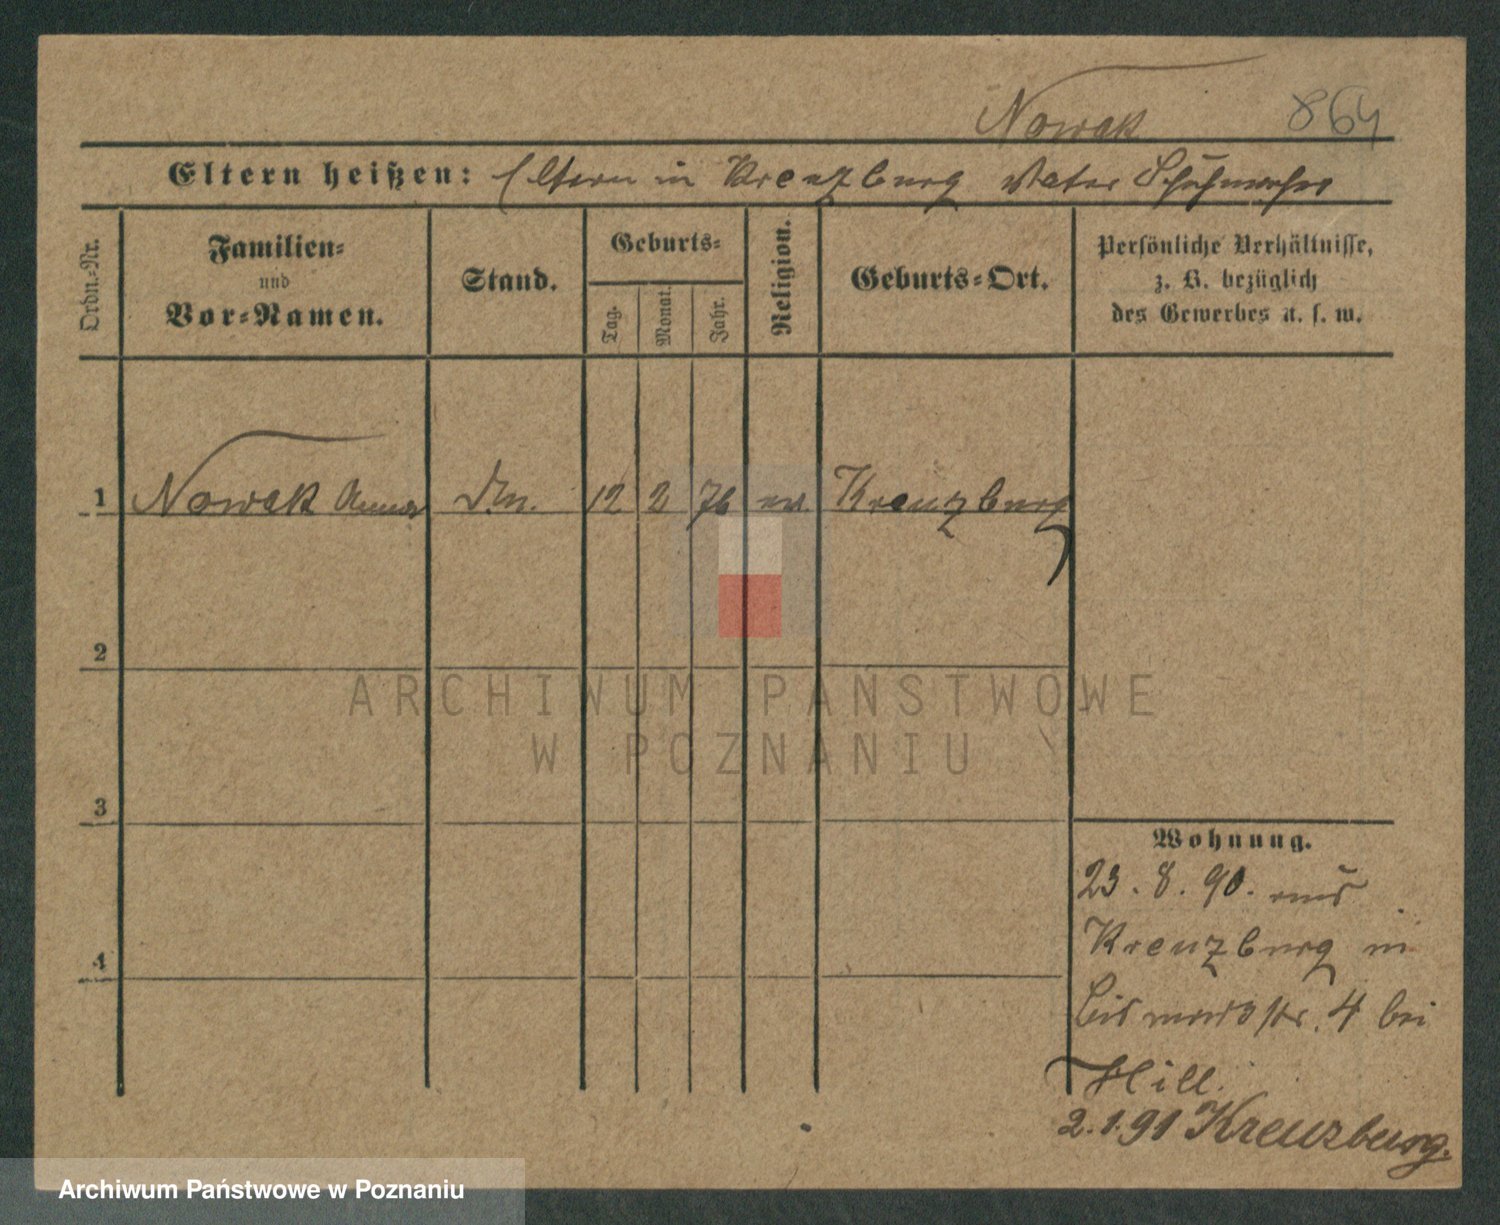 Nowak 864
Eltern heißen: Eltern in Kreuzburg Vater Schuhmacher
Ordn.-Nr.
Familien-
und
Vor-Namen.
Stand.
Geburts-
Tag.
Monat.
Jahr.
Religion.
Geburts-Ort.
Persönliche Verhältnisse,
z. B. bezüglich
des Gewerbes u. s. w.
1 Nowak Anna 12 2 76 Kreuzburg
2
3
4
Wohnung.
23. 8. 90. aus
Kreuzburg in
Bismarckstr. 4 bei
Hill.
2.1.91 Kreuzburg.
ARCHIWUM PAŃSTWOWE
W POZNANIU
Archiwum Państwowe w Poznaniu